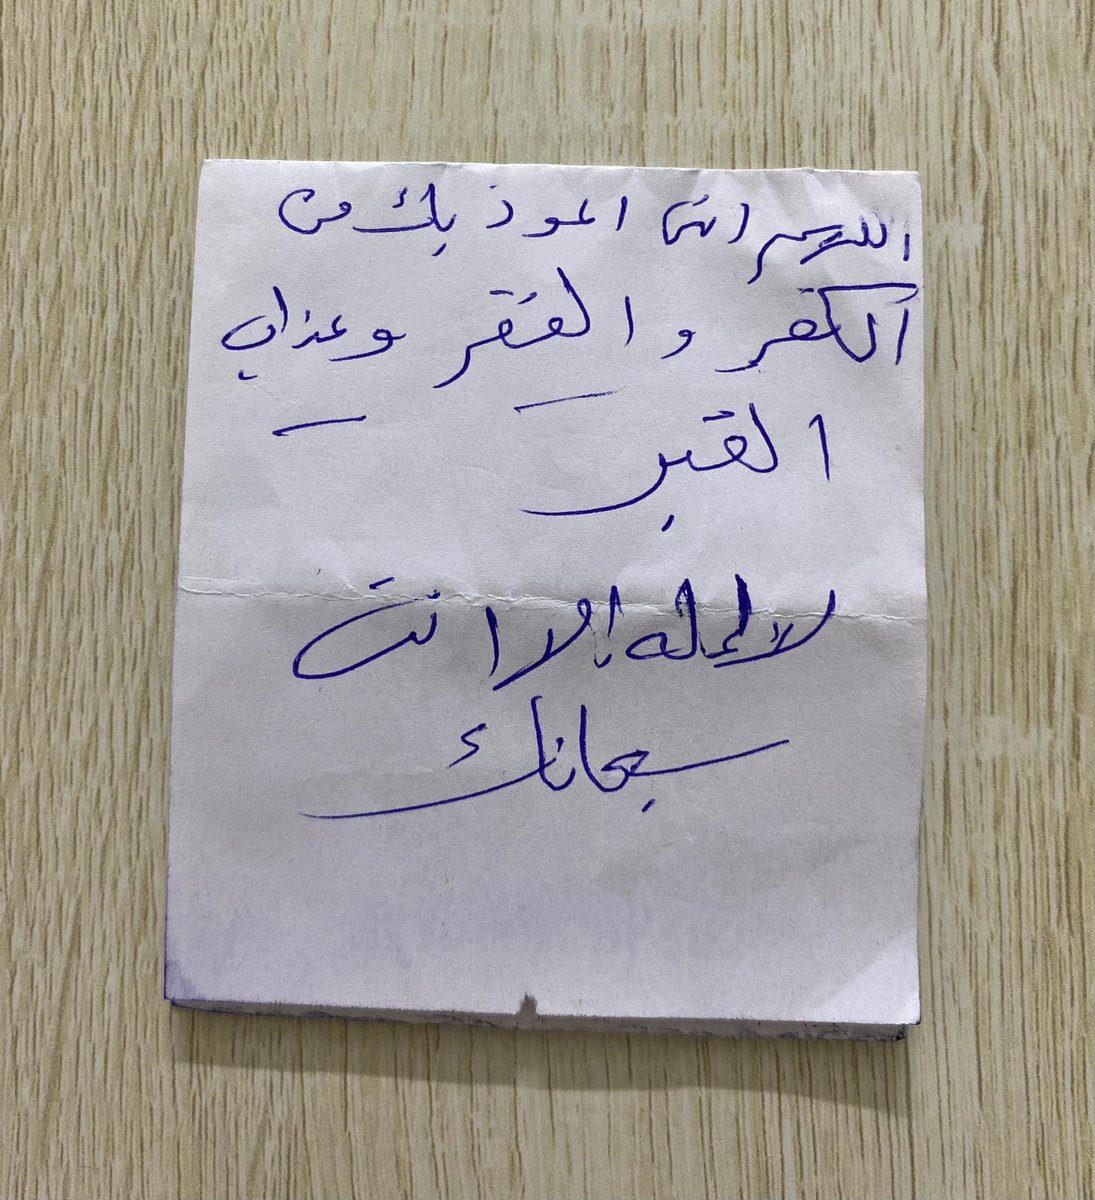 اللهم انى اعوذ بك من
الكفر والفقر وعذاب
القبر
لا إله إلا انت
سبحانك